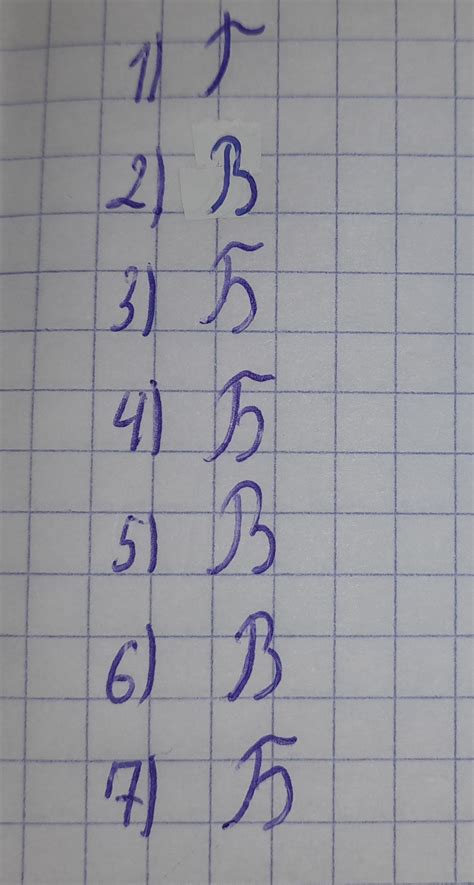 1) Г
2) В
3) Б
4) Б
5) В
6) В
7) Б